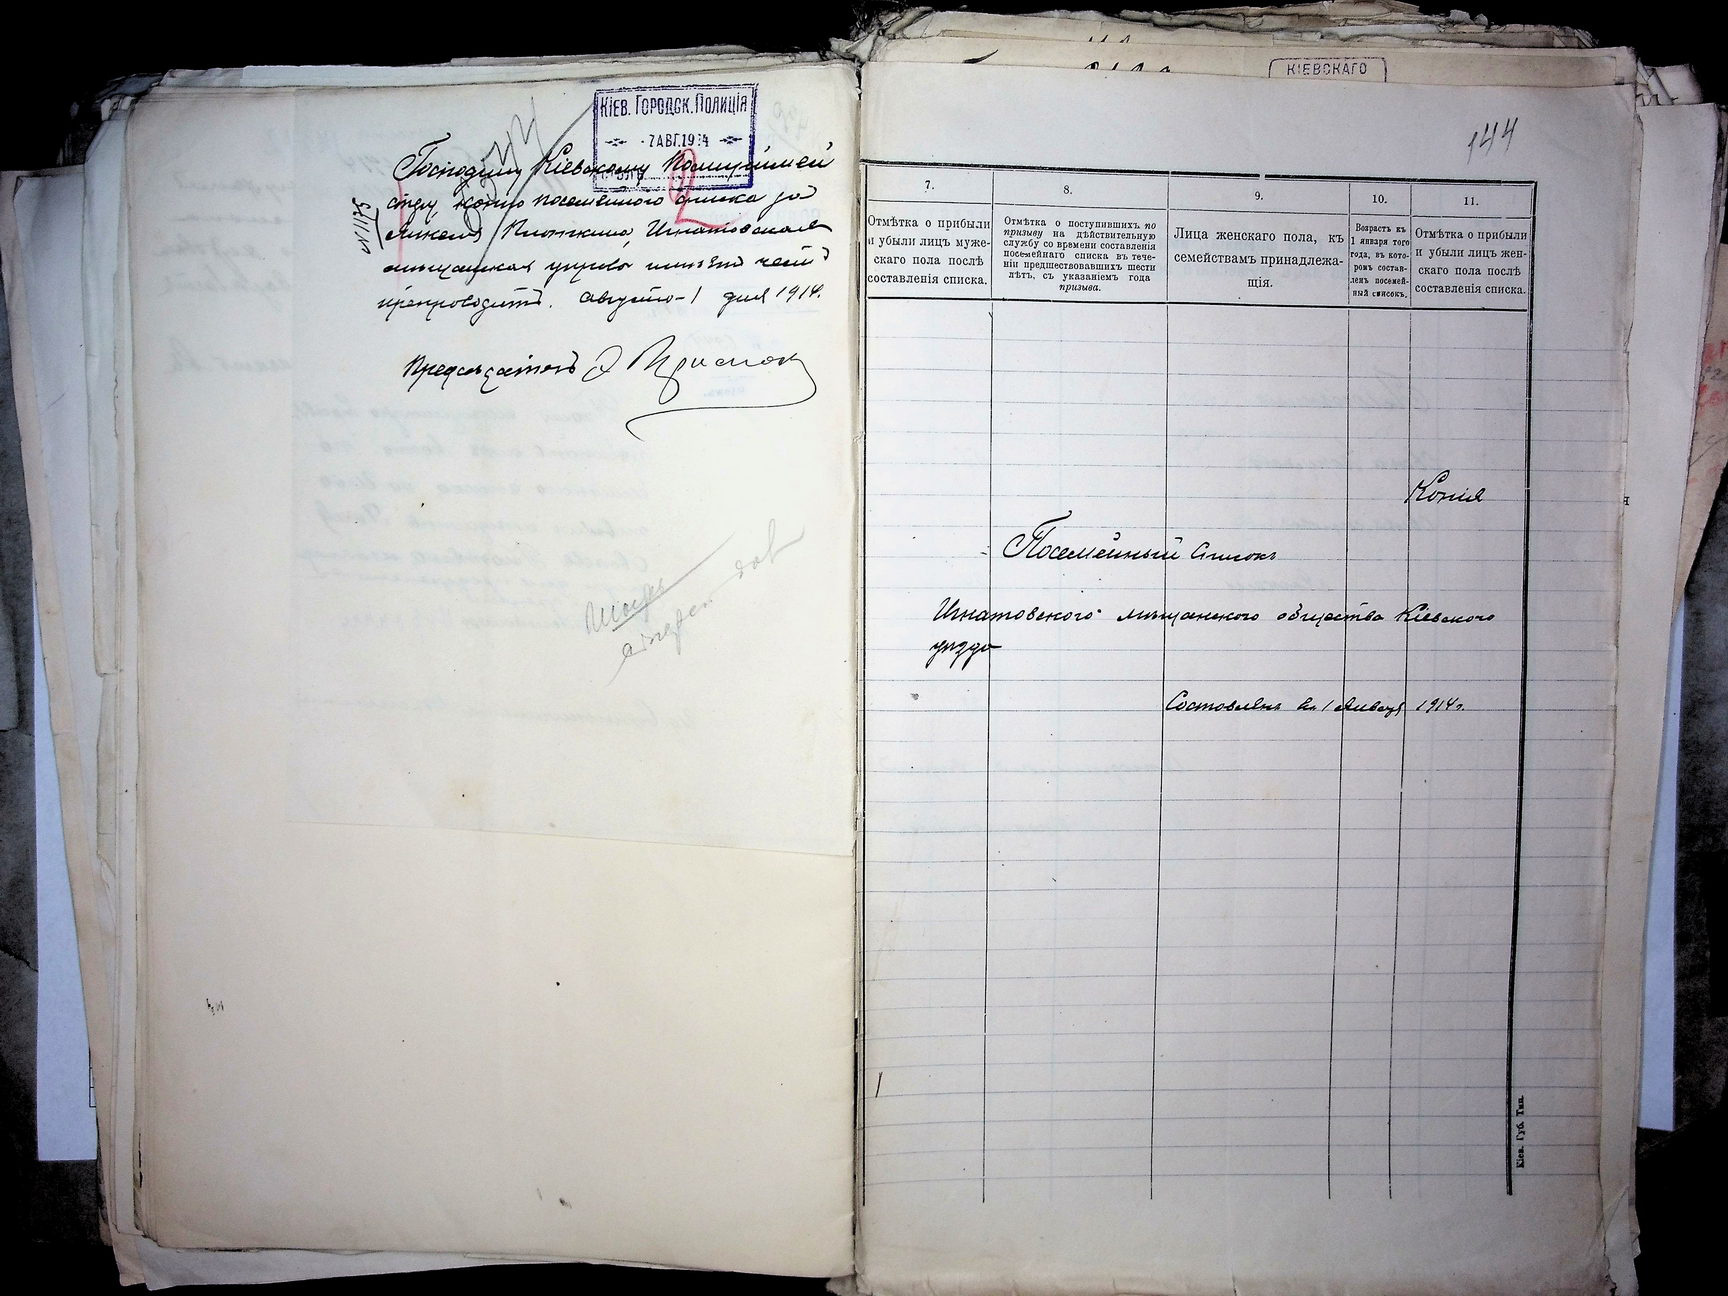 КІЕВ. ГОРОДСК. ПОЛИЦІЯ
7 АВГ. 1914
Господину Кіевскому Полиціймей
стеру копію посемейного списка за
Плоткина, Игнатовская
мѣщанская управа имѣетъ честь
препроводить. Августа 1 дня 1914.
№ 1175
Предсѣдатель
КІЕВСКАГО
144
7.
8.
9.
10.
11.
Отмѣтка о прибыли
и убыли лицъ муже-
скаго пола послѣ
составленія списка.
Отмѣтка о поступившихъ по
призыву на дѣйствительную
службу со времени составленія
посемейнаго списка въ тече-
ніи предшествовавшихъ шести
лѣтъ, съ указаніемъ года
призыва.
Лица женскаго пола, къ
семействамъ принадлежа-
щія.
Возрастъ къ
1 января того
года, въ кото-
ромъ состав-
ленъ посемей-
ный список.
Отмѣтка о прибыли
и убыли лицъ жен-
скаго пола послѣ
составленія списка.
Копія
Посемейный списокъ
Игнатовского мѣщанского общества Кіевского
уѣзда
Составленъ въ 1 Января 1914 г.
Кіев. Губ. Тип.